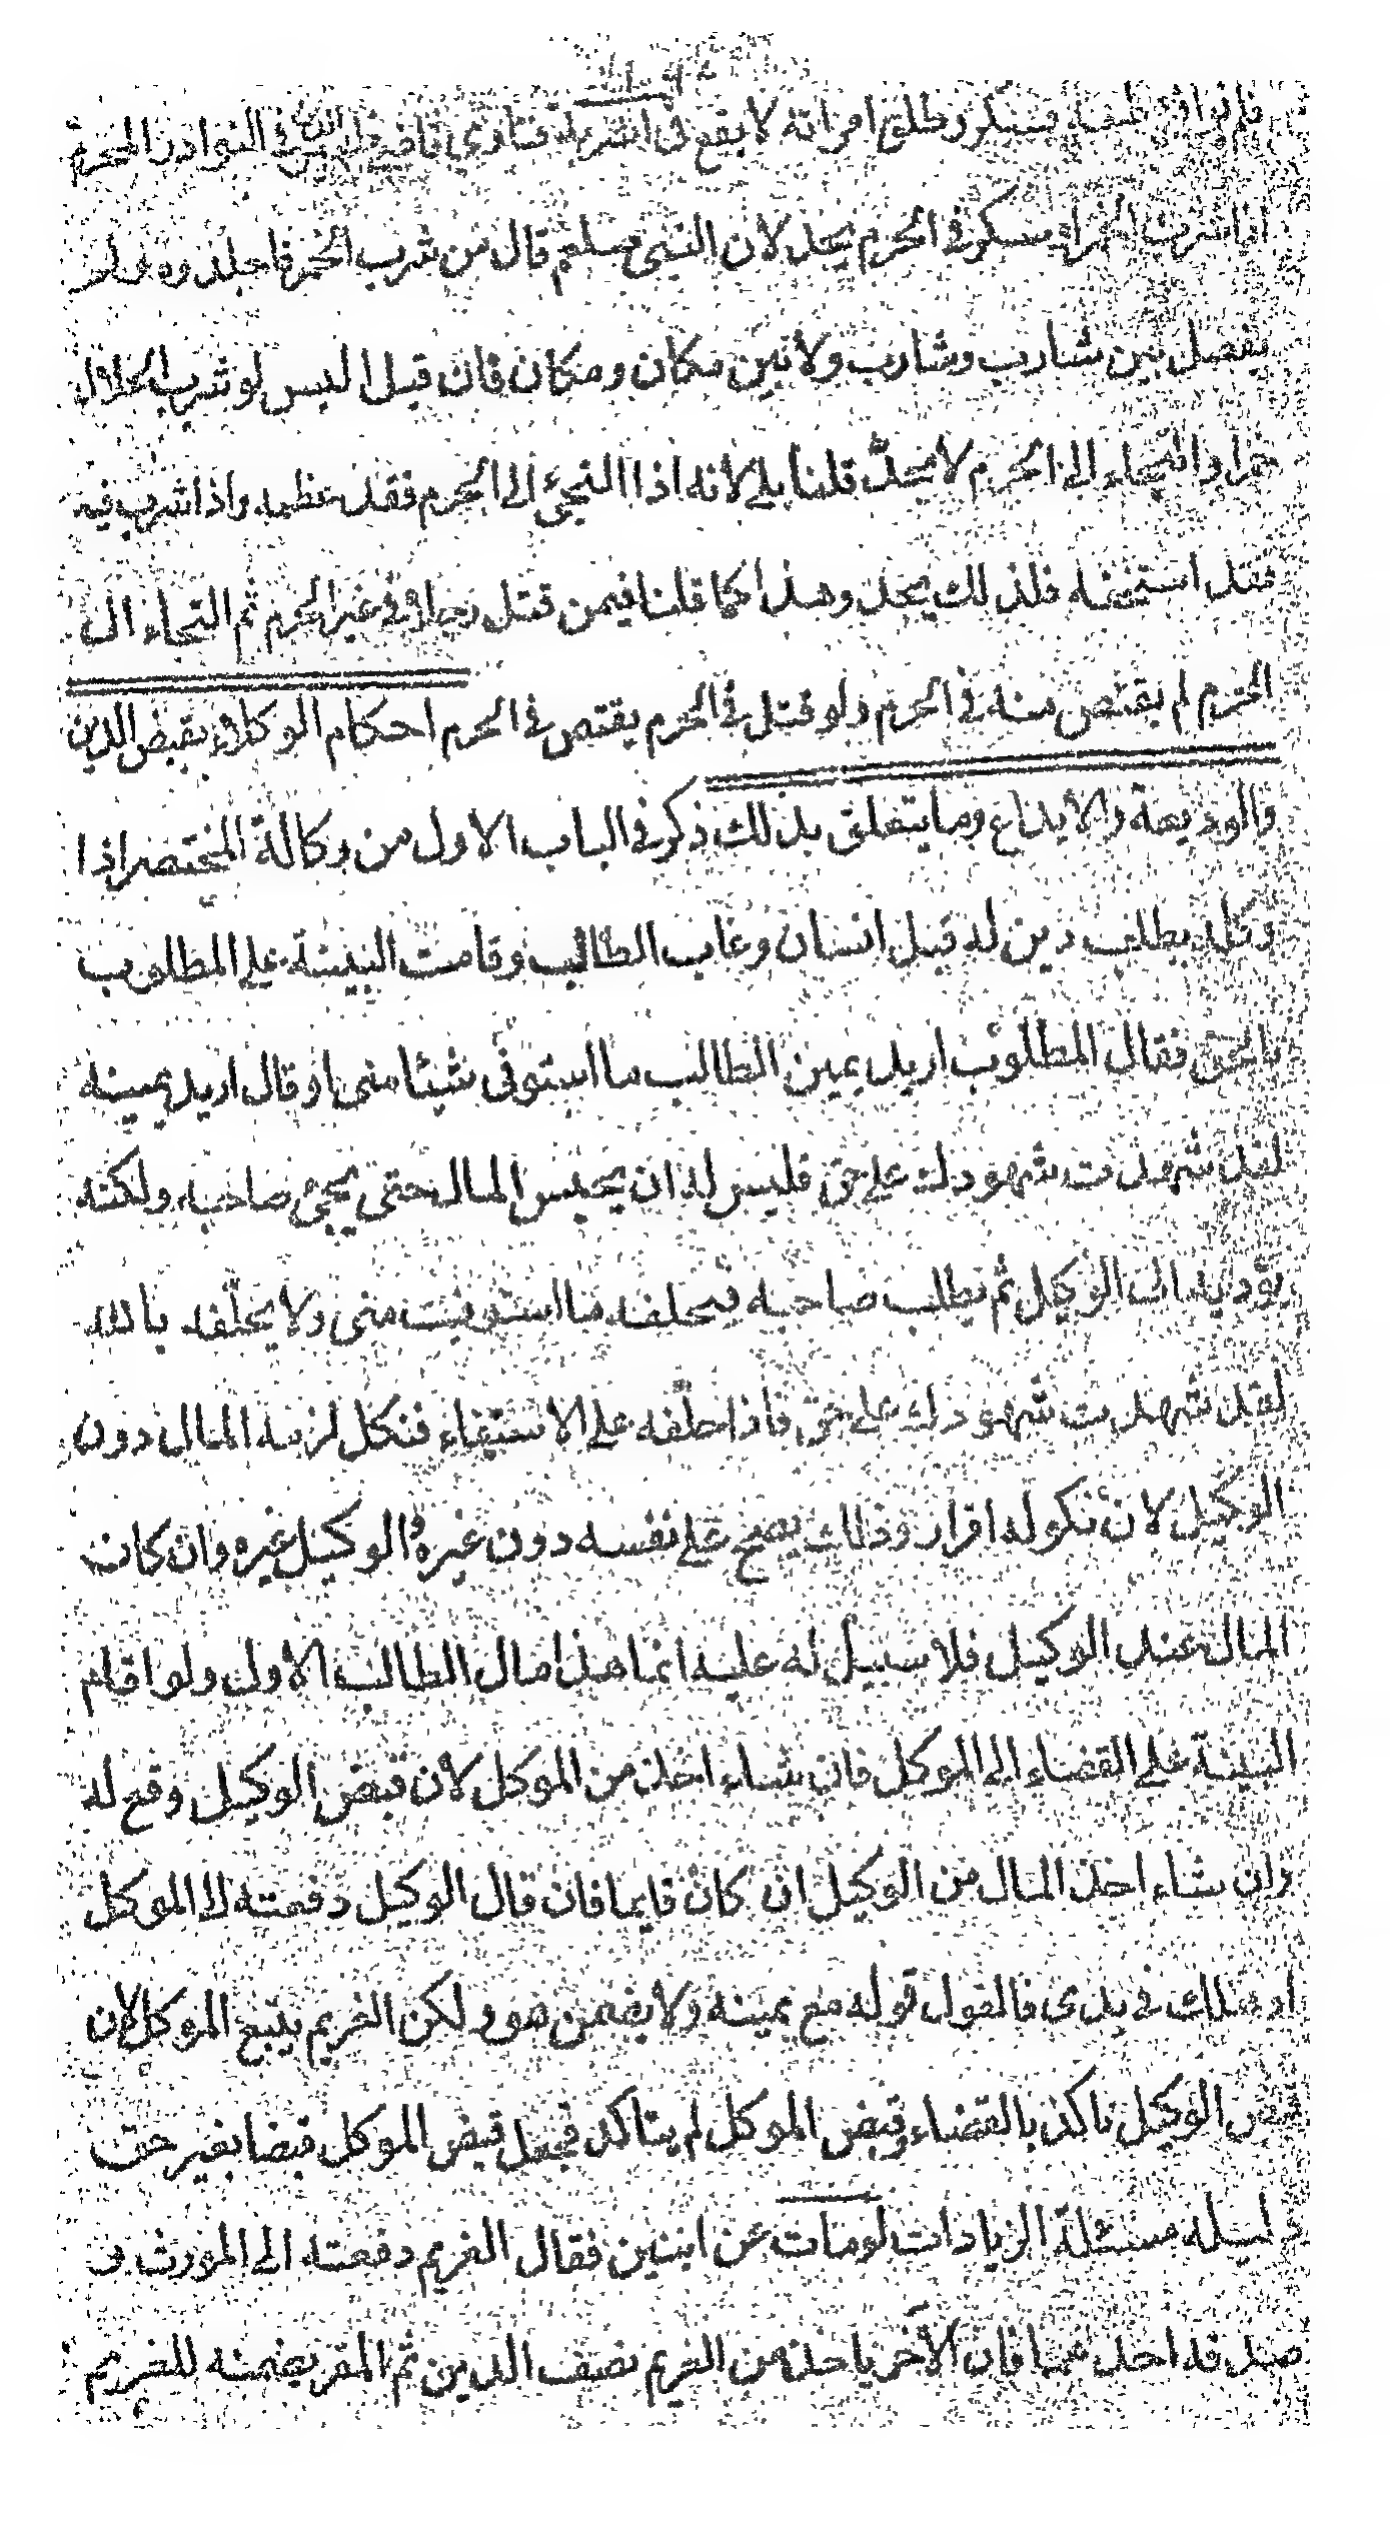 فسكر وطلق امراته لا يقع في اشربة فتاوى قاضي ظهير في النوادر المحرم
اذا شرب الخمر او سكر في الحرم يحد لان النبى صلعم قال من شرب الخمر فاجلدوه ولم
يفصل بين شارب وشارب ولا بين مكان ومكان فان قيل اليس لو شرب الحلال
خمرا والتجاء الى الحرم لا يحد قلنا بلى لانه اذا التجئ الى الحرم فقد عظمه واذا شرب فيه
فقد استخفه فلذلك يحد وهذا كما قلنا فيمن قتل رجلا في غير الحرم ثم التجاء الى
الحرم لم يقتص منه في الحرم ولو قتل في الحرم يقتص في الحرم احكام الوكلاء بقبض الدين
والوديعة والايداع وما يتعلق بذلك ذكر في الباب الاول من وكالة المختصر اذا
وكله بطلب دين له قبل انسان وغاب الطالب وقامت البينة على المطلوب
بالحق فقال المطلوب اريد يمين الطالب ما استوفى شيئا منى او قال اريد يمينه
لقد شهدت شهودك على حق فليس له ان يحبس المال حتى يجئ صاحبه ولكنه
يؤديه الى الوكيل ثم يطلب صاحبه فيحلفه ما استوفيت منى ولا يحلفه بالله
لقد شهدت شهودك على حق فاذا حلفه على الاستيفاء فنكل لزمه المال دون
الوكيل لان نكوله اقرار وذلك يصح على نفسه دون غيره والوكيل غيره وان كان
المال عند الوكيل فلا سبيل له عليه انما هذا مال الطالب الاول ولو اقام
البينة على القضاء الى الموكل فان شاء اخذ من الموكل لان قبض الوكيل وقع له
وان شاء اخذ المال من الوكيل ان كان قايما فان قال الوكيل دفعته الى الموكل
او هلك في يدى فالقول قوله مع يمينه ولا يضمن هو ولكن الغريم يتبع الموكل لان
قبض الوكيل تاكد بالقضاء وقبض الموكل لم يتاكد فجعل قبض الموكل قبضا بغير حق
دليله مسئلة الزيادات لو مات عن ابنين فقال الغريم دفعته الى المورث و
صدقه احدهما فان الآخر ياخذ من الغريم نصف الدين ثم المقر يضمنه للغريم